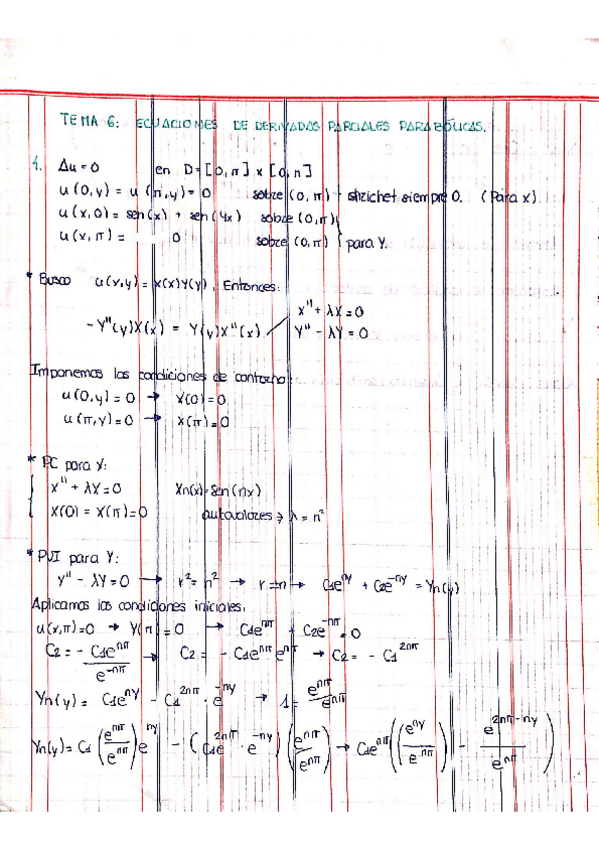 TEMA 6: ECUACIONES DE DERIVADAS PARCIALES PARABÓLICAS.
1. Δu = 0 en D = [0, π] x [0, π]
u(0,y) = u(π,y) = 0 sobre (0, π) siempre 0. (Para x).
u(x,0) = sen(x) + sen(4x) sobre (0,π)
u(x,π) = 0 sobre (0, π) } para Y.
* Busco u(x,y) = X(x)Y(y). Entonces:
X'' + λX = 0
- Y''(y)X(x) = Y(y)X''(x) Y'' - λY = 0
Imponemos las condiciones de contorno:
u(0,y) = 0 → X(0) = 0
u(π,y) = 0 → X(π) = 0
* PC para X:
X'' + λX = 0 Xn(x) = sen(nx)
X(0) = X(π) = 0 autovalores → λ = n²
* PVI para Y:
y'' - λY = 0 → r² = n² → r = ±n → C1e^{ny} + C2e^{-ny} = Yn(y)
Aplicamos las condiciones iniciales.
u(x,π) = 0 → Y(π) = 0 → C1e^{nπ} + C2e^{-nπ} = 0
C2 = - C1e^{nπ} / e^{-nπ} → C2 = - C1e^{nπ} e^{nπ} → C2 = - C1^{2nπ}
Yn(y) = C1e^{ny} - C1^{2nπ} · e^{-ny} → 1 = e^{nπ} / e^{nπ}
Yn(y) = C1 (e^{nπ} / e^{nπ}) e^{ny} - (C1e^{2nπ} · e^{-ny}) (e^{nπ} / e^{nπ}) → C1e^{nπ} ((e^{ny} / e^{nπ}) - e^{2nπ-ny} / e^{nπ})